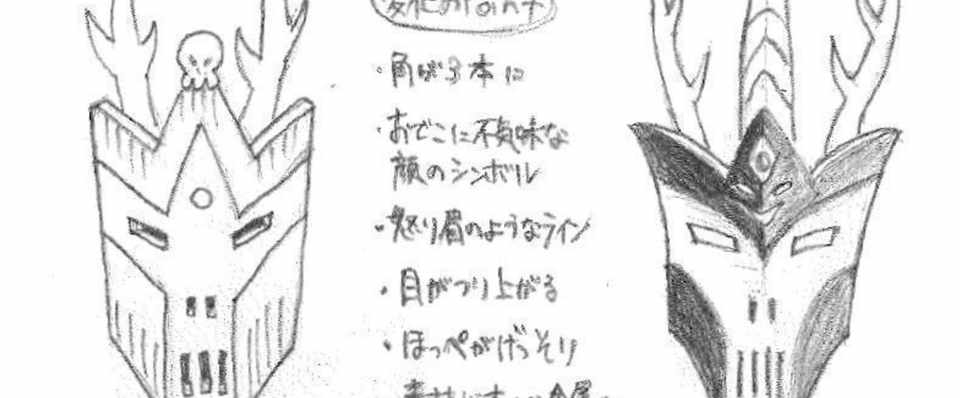 変化のPoint
・角が3本に
・おでこに不気味な
顔のシンボル
・怒り眉のようなライン
・目がつり上がる
・ほっぺがげっそり